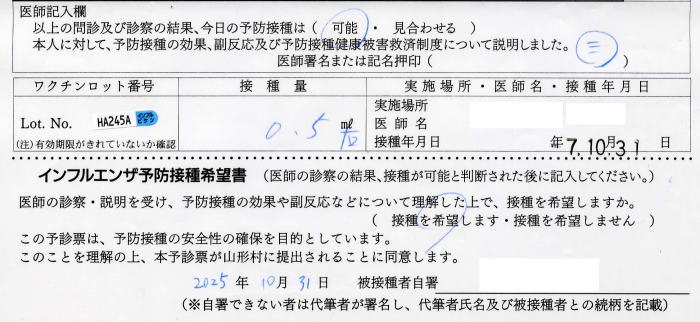 医師記入欄
以上の問診及び診察の結果、今日の予防接種は（ 可能 ・ 見合わせる ）
本人に対して、予防接種の効果、副反応及び予防接種健康被害救済制度について説明しました。
医師署名または記名押印（ ）
ワクチンロット番号 接種量 実施場所・医師名・接種年月日
Lot. No. HA245A
(注)有効期限がきれていないか確認
0.5 ㎖
実施場所
医師名
接種年月日 年 7.10月31 日
インフルエンザ予防接種希望書 （医師の診察の結果、接種が可能と判断された後に記入してください。）
医師の診察・説明を受け、予防接種の効果や副反応などについて理解した上で、接種を希望しますか。
（ 接種を希望します・接種を希望しません ）
この予診票は、予防接種の安全性の確保を目的としています。
このことを理解の上、本予診票が山形村に提出されることに同意します。
2025 年 10 月 31 日 被接種者自署
（※自署できない者は代筆者が署名し、代筆者氏名及び被接種者との続柄を記載）